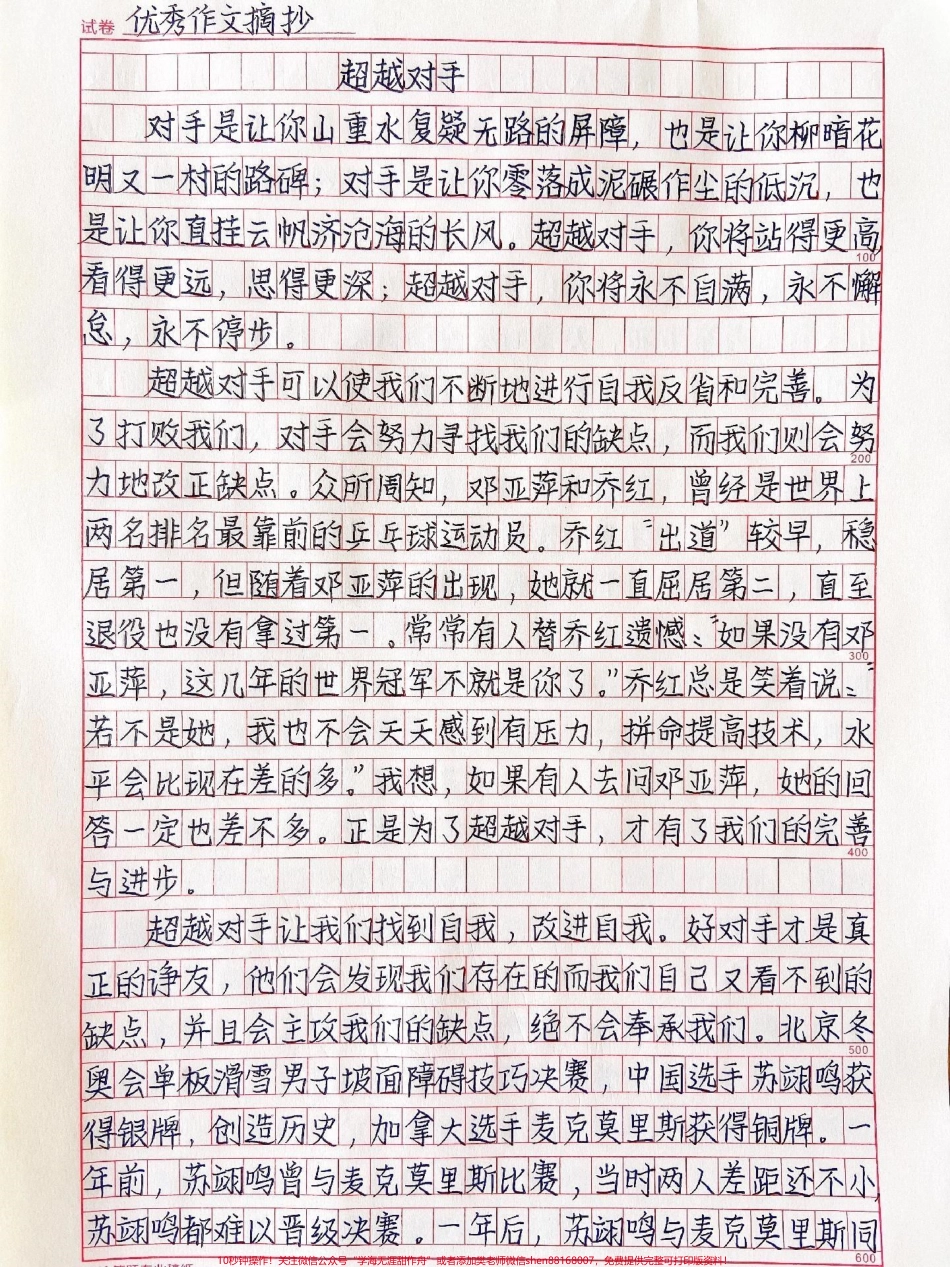 试卷 优秀作文摘抄
超越对手
对手是让你山重水复疑无路的屏障，也是让你柳暗花
明又一村的路碑；对手是让你零落成泥碾作尘的低沉，也
是让你直挂云帆济沧海的长风。超越对手，你将站得更高，
100
看得更远，思得更深；超越对手，你将永不自满，永不懈
怠，永不停步。
超越对手可以使我们不断地进行自我反省和完善。为
了打败我们，对手会努力寻找我们的缺点，而我们则会努
200
力地改正缺点。众所周知，邓亚萍和乔红，曾经是世界上
两名排名最靠前的乒乓球运动员。乔红“出道”较早，稳
居第一，但随着邓亚萍的出现，她就一直屈居第二，直至
退役也没有拿过第一。常常有人替乔红遗憾：“如果没有邓
300
亚萍，这几年的世界冠军不就是你了。”乔红总是笑着说：“
若不是她，我也不会天天感到有压力，拼命提高技术，水
平会比现在差的多。”我想，如果有人去问邓亚萍，她的回
答一定也差不多。正是为了超越对手，才有了我们的完善
400
与进步。
超越对手让我们找到自我，改进自我。好对手才是真
正的诤友，他们会发现我们存在的而我们自己又看不到的
缺点，并且会主攻我们的缺点，绝不会奉承我们。北京冬
500
奥会单板滑雪男子坡面障碍技巧决赛，中国选手苏翊鸣获
得银牌，创造历史，加拿大选手麦克莫里斯获得铜牌。一
年前，苏翊鸣曾与麦克莫里斯比赛，当时两人差距还不小，
苏翊鸣都难以晋级决赛。一年后，苏翊鸣与麦克莫里斯同
600
10秒钟操作！关注微信公众号“学海无涯甜作舟”或者添加樊老师微信shen88168007，免费提供完整可打印版资料！